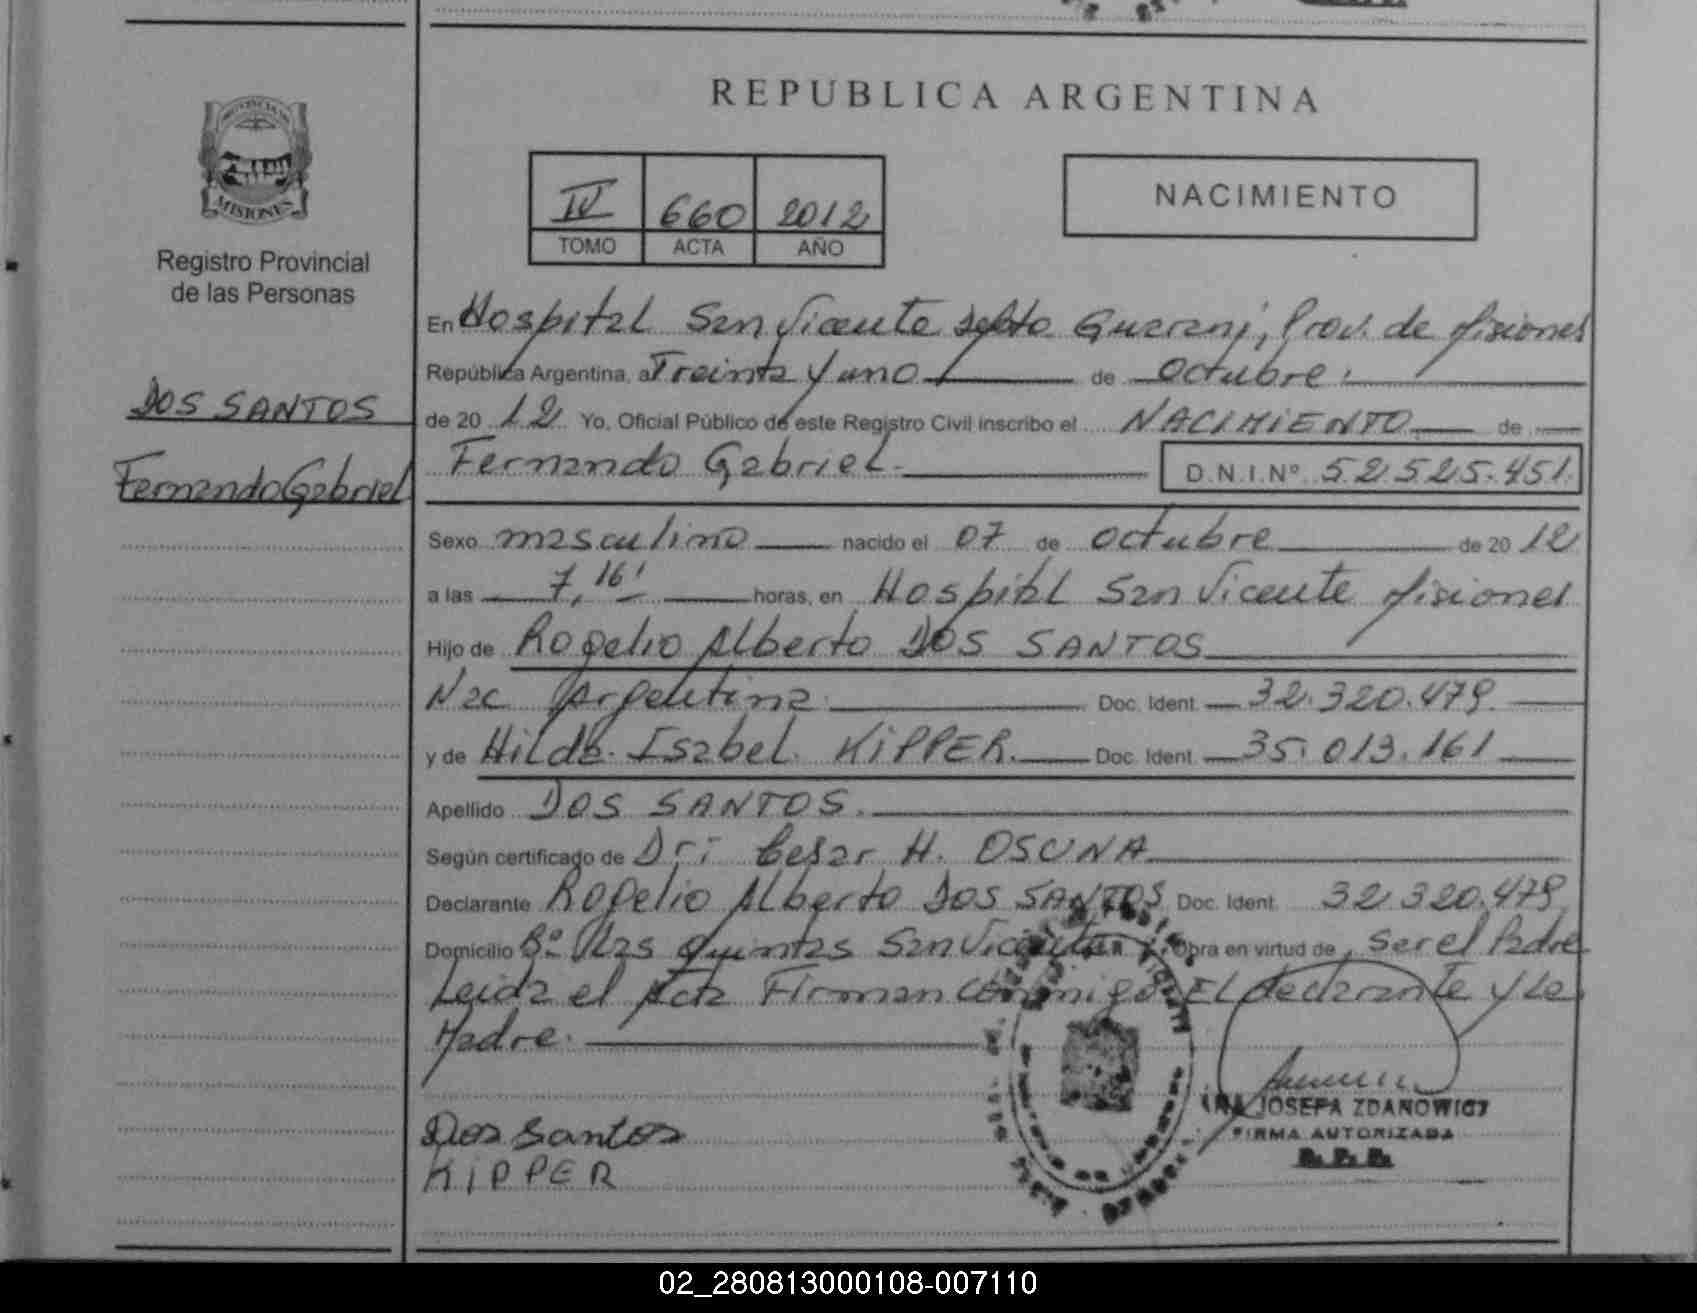 REPUBLICA ARGENTINA
MISIONES
Registro Provincial
de las Personas
IV 660 2012
TOMO ACTA AÑO
NACIMIENTO
DOS SANTOS
Fernando Gabriel
En Hospital San Vicente Dpto Guarani, Prov. de Misiones
República Argentina, a Treinta y uno de octubre
de 20 12 Yo, Oficial Público de este Registro Civil inscribo el NACIMIENTO de
Fernando Gabriel D.N.I.Nº 52.525.451
Sexo masculino nacido el 07 de octubre de 20 12
a las 7,16' horas, en Hospital San Vicente Misiones
Hijo de Rogelio Alberto DOS SANTOS
Nac Argentina Doc. Ident. 32.320.479
y de Hilda Isabel KIPPER. Doc. Ident. 35.013.161
Apellido DOS SANTOS.
Según certificado de Dr: Cesar H. OSUNA
Declarante Rogelio Alberto DOS SANTOS Doc. Ident. 32.320.479
Domicilio Bº Las Quintas San Vicente Obra en virtud de Ser el Padre
Leida el Acta Firman Conmigo El declarante y La
Madre.
Dos Santos
KIPPER
JOSEFA ZDANOWICZ
FIRMA AUTORIZADA
R. P. P.
02_280813000108-007110